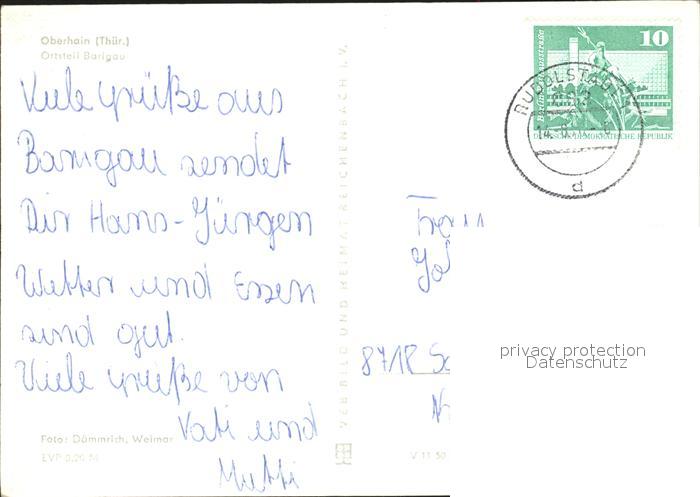 Oberhain (Thür.)
Ortsteil Barigau
Viele Grüße aus
Barigau sendet
Dir Hans-Jürgen
Wetter und Essen
sind gut.
Viele Grüße von
Vati und
Mutti
Foto: Dämmrich, Weimar
EVP 0,20 M
VEB BILD UND HEIMAT REICHENBACH I. V.
V 11 50
10
DEUTSCHE DEMOKRATISCHE REPUBLIK
RUDOLSTADT
d
privacy protection
Datenschutz